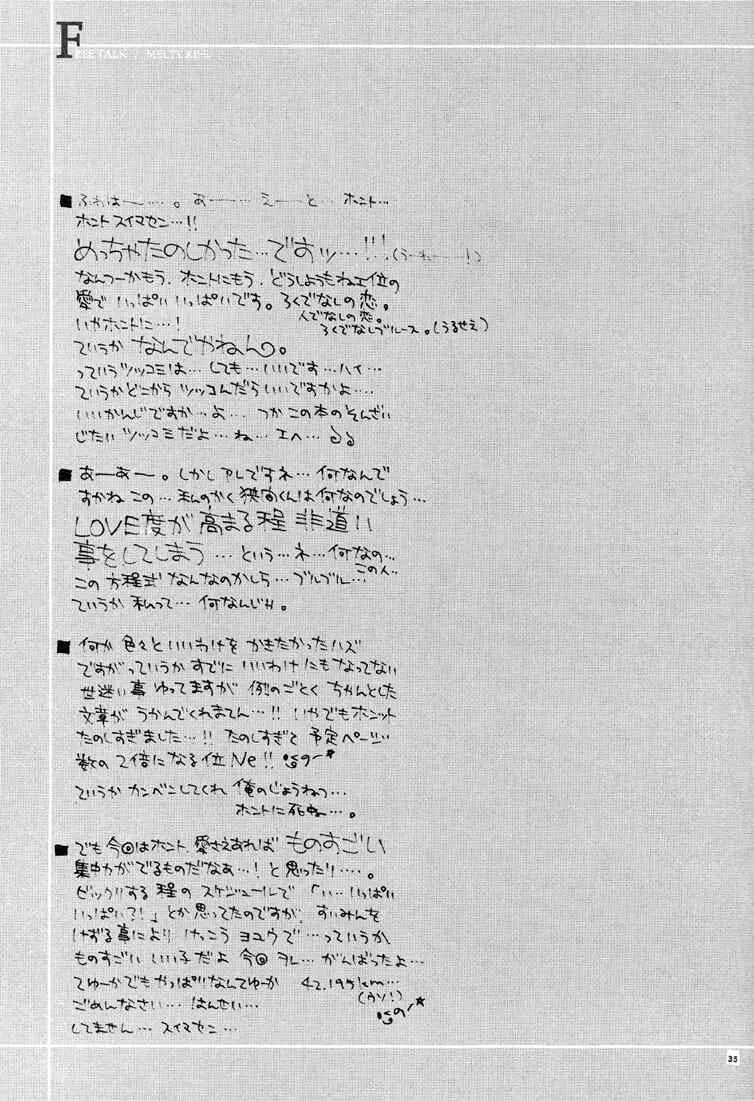 FREE TALK
■ふわはー…。あー… えーと… ホント…
ホント スイマセン…!!
めっちゃたのしかった…ですッ…!!!(うーねー!)
なんつーかもう、ホントにもう、どうしようもねェ位の
愛で いっぱい いっぱいです。ろくでなしの恋。
人でなしの恋。
いやホントに…!
ろくでなしブルース。(うるせえ)
ていうか なんでやねん。
っていうツッコミは… しても… いいです…ハイ…
ていうかどこから ツッコんだらいいですかよ…
いいかんじですか…よ… つか この本のそんざい
じたい ツッコミだよ…ね…エヘ…
■あーあー。しかしアレですネ… 何なんで
すかね この… 私のかく くんは何なのでしょう…
LOVE度が高まる程 非道い
事をしてしまう … という…ネ…何なの…
この人…
この 方程式 なんなのかしら… ブルブル…
ていうか 私って… 何なんじゃ。
■何か 色々と いいわけを かきたかったハズ
ですがっていうか すでに いいわけ にもなってない
世迷い事 ゆってますが 例のごとく ちゃんとした
文章が うかんでくれません…!! いやでもホンット
たのしすぎました…!! たのしすぎて 予定ページ
数の 2倍になる位 Ne!!
ていうか カンベンしてくれ 俺のじょうねつ…
ホントに死ね…。
■でも 今回はホント、愛さえあれば ものすごい
集中力がでるものだなぁ…! と思ったり…。
ビックリする程の スケジュールで 「い…いっぱい
いっぱい?!」とか思ってたのですが、すいみんを
けずる事により けっこう ヨユウで …っていうか、
ものすごい いい子だよ 今回 オレ… がんばったよ…
てゆーかでもやっぱりなんてゆーか 42.195km…
(ウソ!)
ごめんなさい… はんせい…
してません… スイマセン…
35